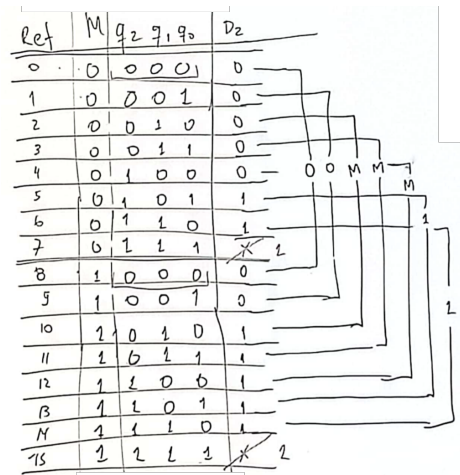 Ref M q2 q1 q0 D2
0 0 0 0 0 0
1 0 0 0 1 0
2 0 0 1 0 0
3 0 0 1 1 0
4 0 1 0 0 0 0 0 M M
M
5 0 1 0 1 1
1
6 0 1 1 0 1
7 0 1 1 1 X 1
8 1 0 0 0 0
9 1 0 0 1 0
1
10 1 0 1 0 1
11 1 0 1 1 1
12 1 1 0 0 1
13 1 1 0 1 1
14 1 1 1 0 1
15 1 1 1 1 X 1